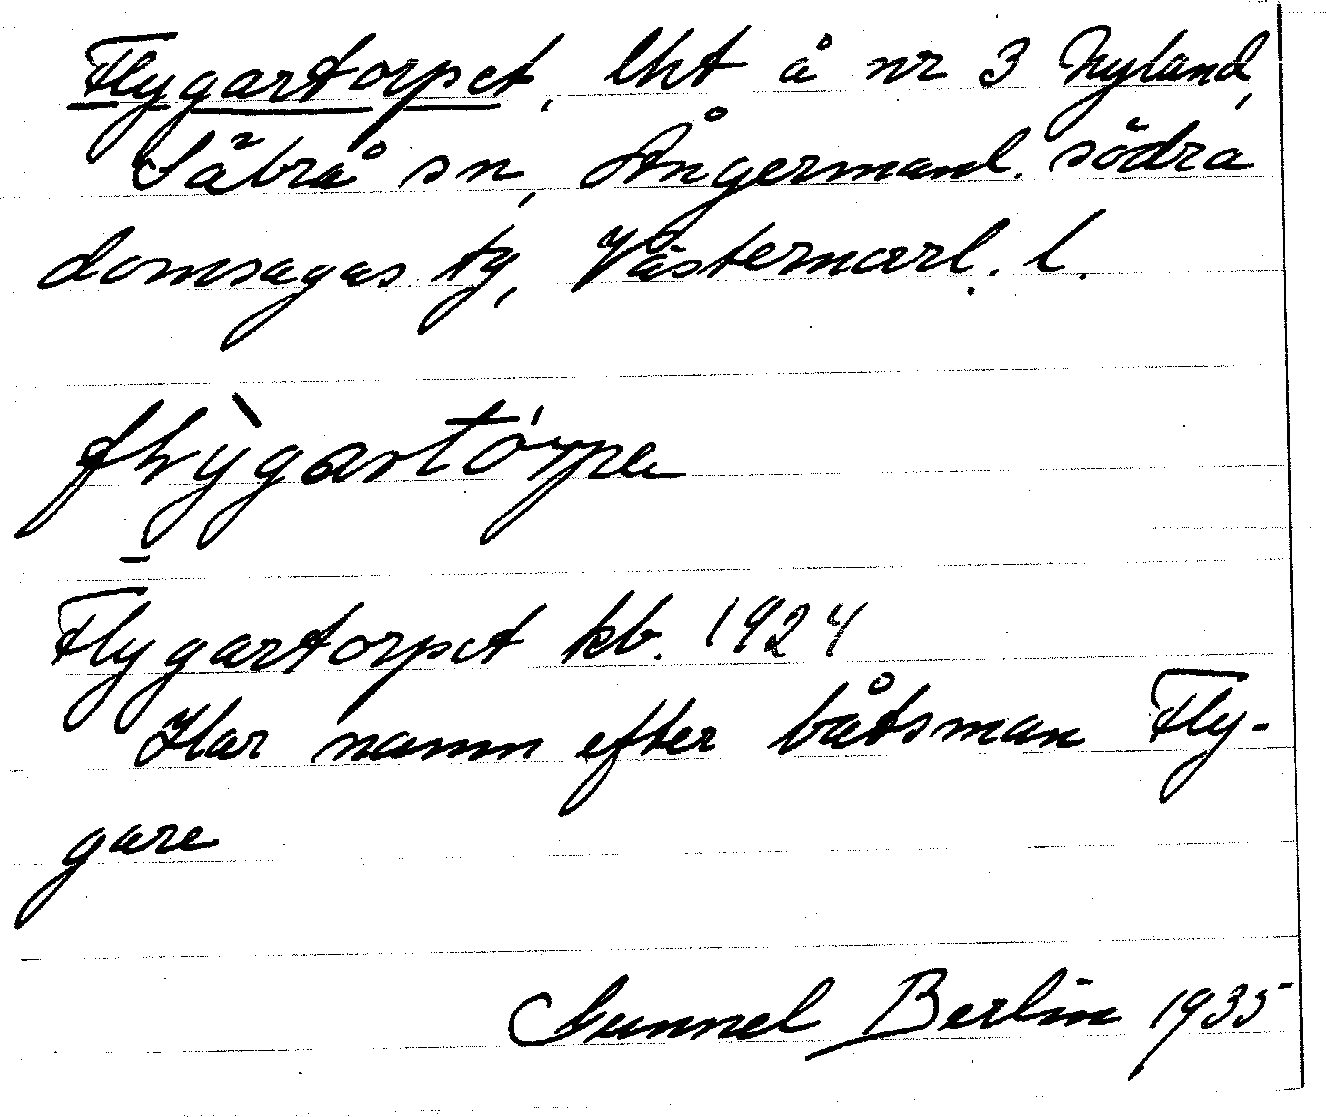 Flygartorpet, lht å nr 3 Nyland,
Säbrå sn, Ångermanl. södra
domsagas tg, Västernorrl. l.
flỳgartórpa
Flygartorpet kb. 1924
Har namn efter båtsman Fly-
gare
Gunnel Berlin 1935